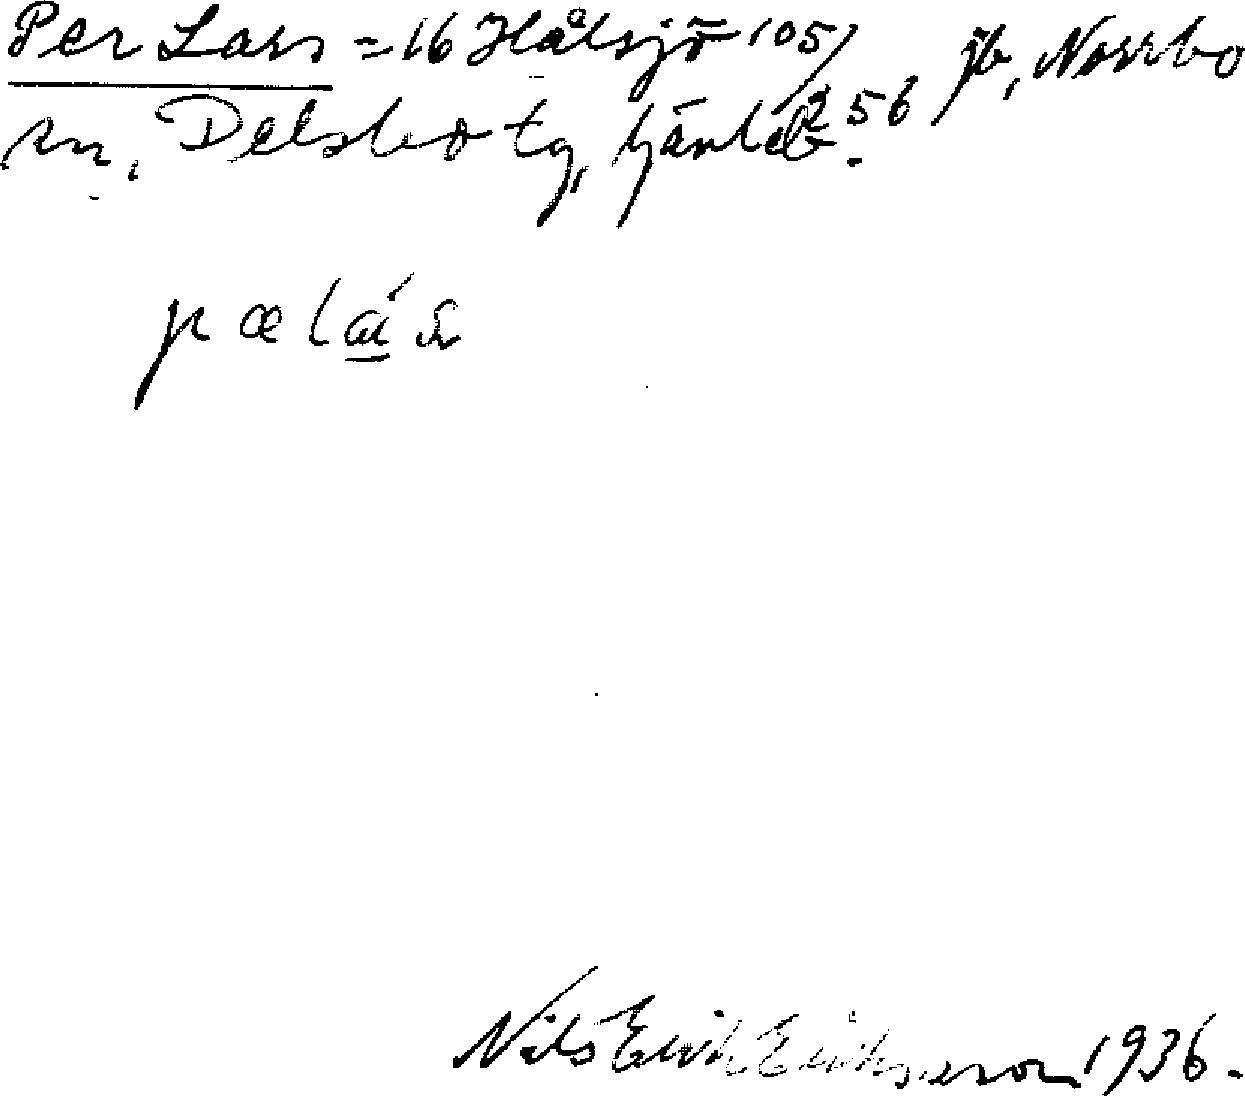 Per Lars = 16 Hålsjö 105/256 jb, Norrbo
sn, Delsbo tg, Gävleb.
pælás
Nils Erik Eriksson 1936.